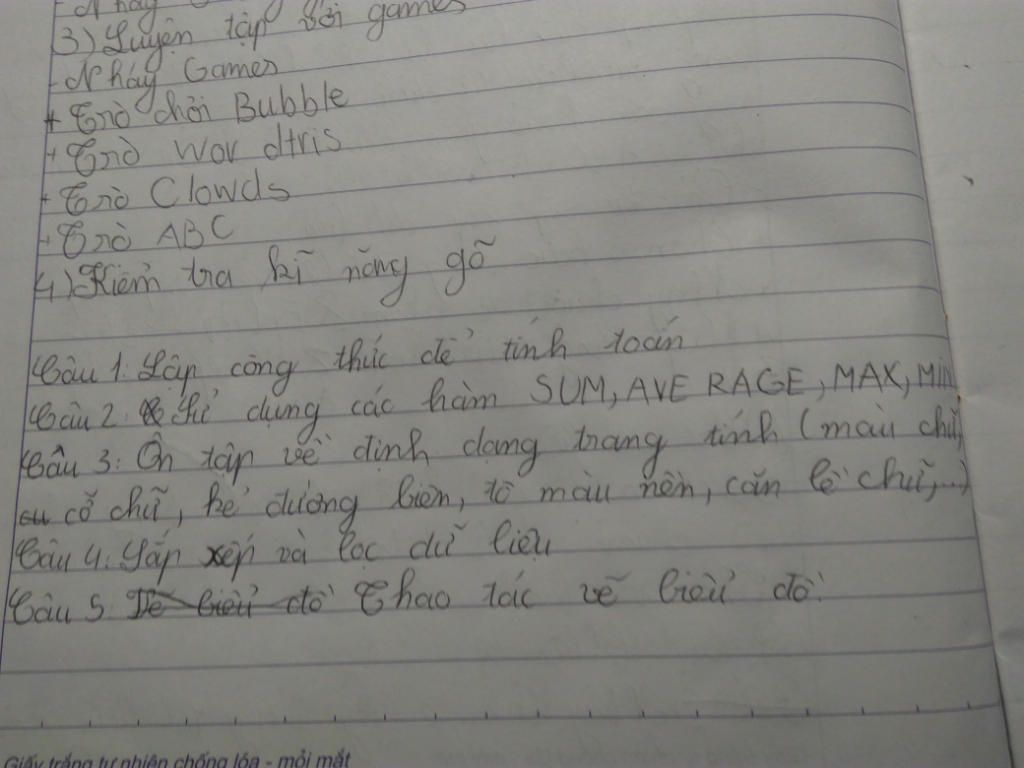 - Nháy
3) Luyện tập với games
- Nháy Games
+ Trò chơi Bubble
+ Trò Wordtris
+ Trò Clowds
+ Trò ABC
4) Kiểm tra kĩ năng gõ
Câu 1: Lập công thức để tính toán
Câu 2: Sử dụng các hàm SUM, AVERAGE, MAX, MIN
Câu 3: Ôn tập về định dạng trang tính (màu chữ,
cỡ chữ, kẻ đường biên, tô màu nền, căn lề chữ,...)
Câu 4: Sắp xếp và lọc dữ liệu
Câu 5: Vẽ biểu đồ Thao tác vẽ biểu đồ.
Giấy trắng tự nhiên chống lóa - mỏi mắt